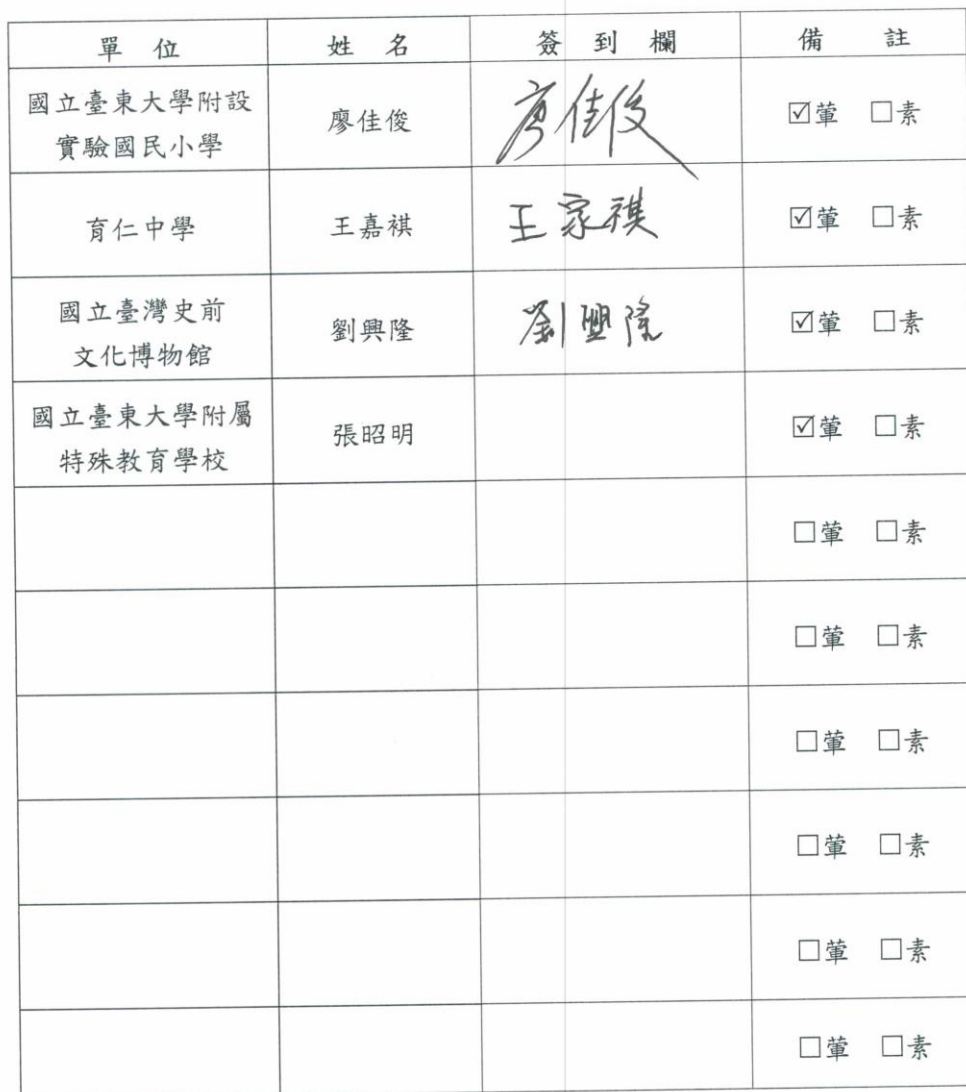 單位 姓名 簽到欄 備註
國立臺東大學附設
實驗國民小學
廖佳俊 廖佳俊 ☑葷 □素
育仁中學 王嘉祺 王家祺 ☑葷 □素
國立臺灣史前
文化博物館
劉興隆 劉興隆 ☑葷 □素
國立臺東大學附屬
特殊教育學校
張昭明 ☑葷 □素
□葷 □素
□葷 □素
□葷 □素
□葷 □素
□葷 □素
□葷 □素